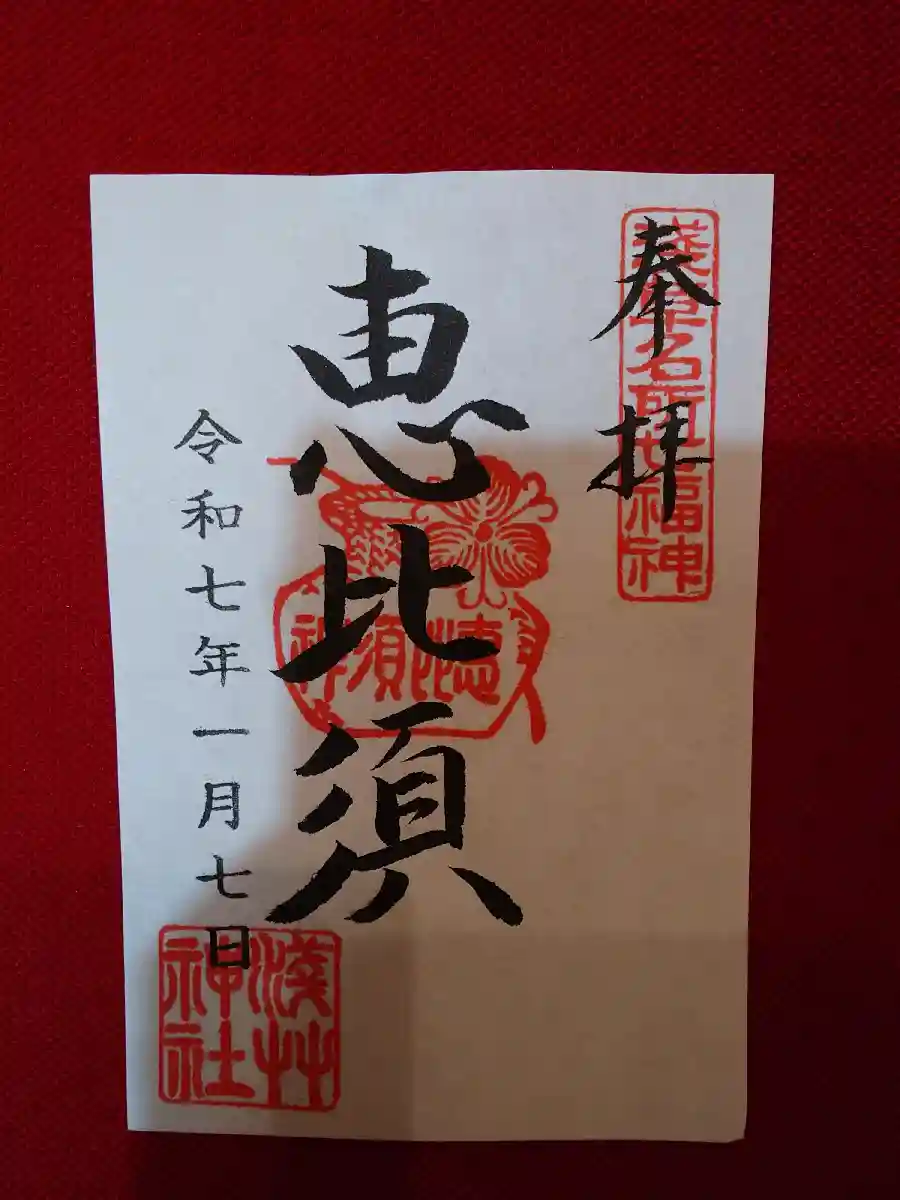 奉拝
淺草名所七福神
恵比須
恵比須神
令和七年一月七日
淺艸神社